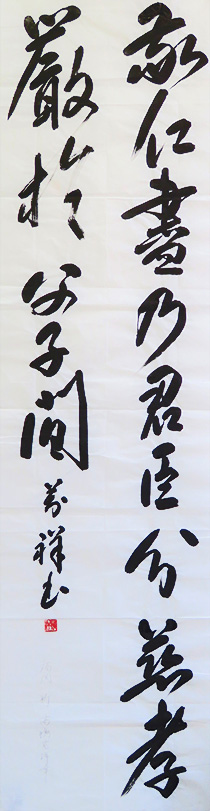 敬仁盡乃君臣分慈孝
嚴於父子間
祥书